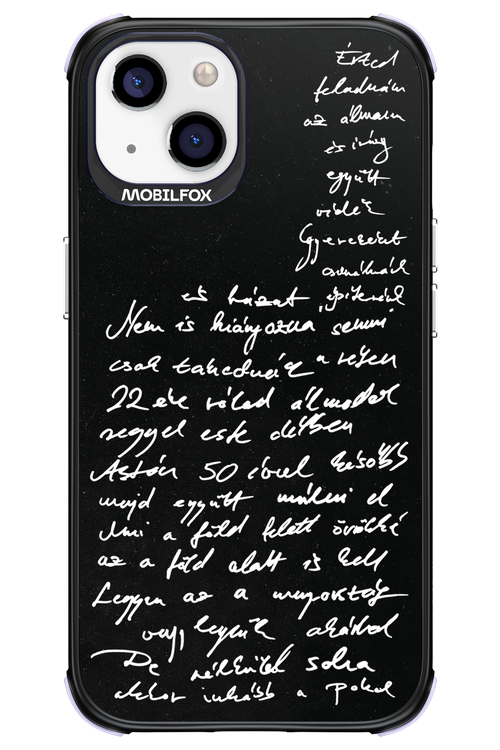 MOBILFOX
Érted
feladnám
az álmom
és irány
együtt
vidék
Gyerekeink
csinálnánk
és házat építenénk
Nem is hiányozna semmi
csak takednék a réten
22 éve rólad álmodok
reggel este délben
Aztán 50 évvel később
majd együtt múlni el
Ami a föld felett örökké
az a föld alatt is kell
Legyen az a mennyország
vagy legyünk akárhol
De nélküled soha
akkor inkább a pokol